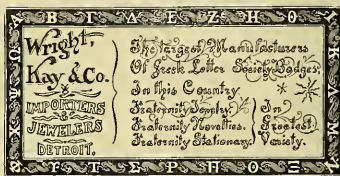 Α Β Γ Δ Ε Ζ Η Θ Ι
Wright,
Kay & Co.
IMPORTERS
&
JEWELERS
DETROIT.
The Largest Manufacturers
Of Greek Letter Society Badges,
In this Country.
Fraternity Jewelry, In
Fraternity Novelties. Greatest
Fraternity Stationary. Variety.
Κ Λ Μ
Ξ Ο Π Ρ Σ Τ
Χ Ψ Ω